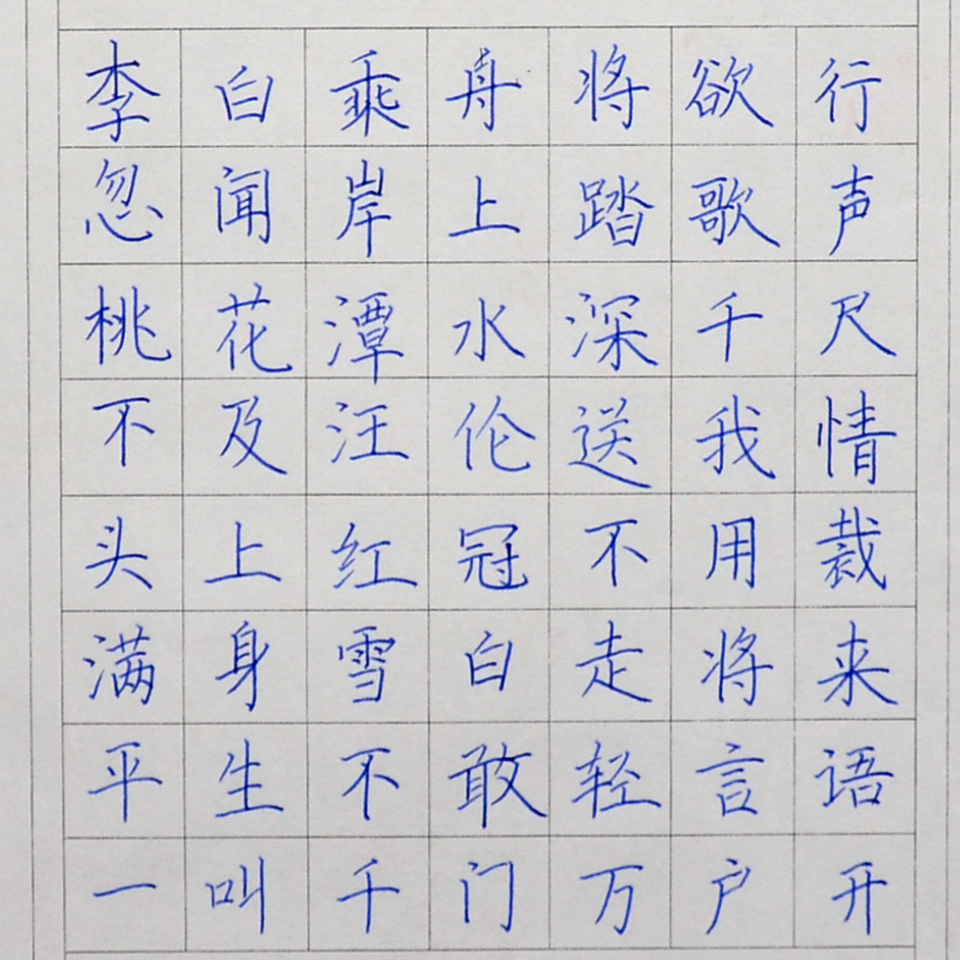 李白乘舟将欲行
忽闻岸上踏歌声
桃花潭水深千尺
不及汪伦送我情
头上红冠不用裁
满身雪白走将来
平生不敢轻言语
一叫千门万户开